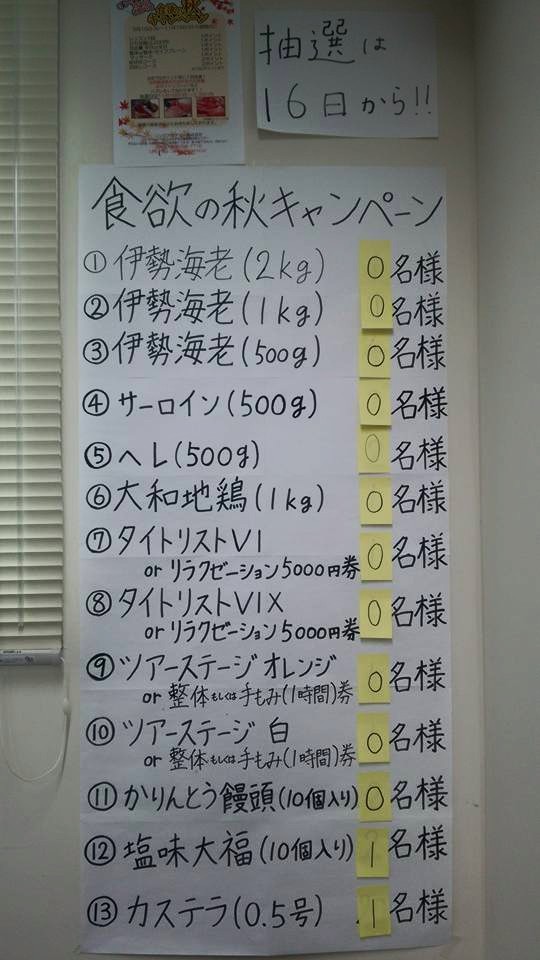 抽選は
16日から!!
食欲の秋キャンペーン
① 伊勢海老(2kg) 0名様
② 伊勢海老(1kg) 0名様
③ 伊勢海老(500g) 0名様
④ サーロイン(500g) 0名様
⑤ ヘレ(500g) 0名様
⑥ 大和地鶏(1kg) 0名様
⑦ タイトリストV1 0名様
or リラクゼーション5000円券
⑧ タイトリストV1X 0名様
or リラクゼーション5000円券
⑨ ツアーステージ オレンジ 0名様
or 整体もしくは手もみ(1時間)券
⑩ ツアーステージ 白 0名様
or 整体もしくは手もみ(1時間)券
⑪ かりんとう饅頭(10個入り) 0名様
⑫ 塩味大福(10個入り) 1名様
⑬ カステラ(0.5号) 1名様